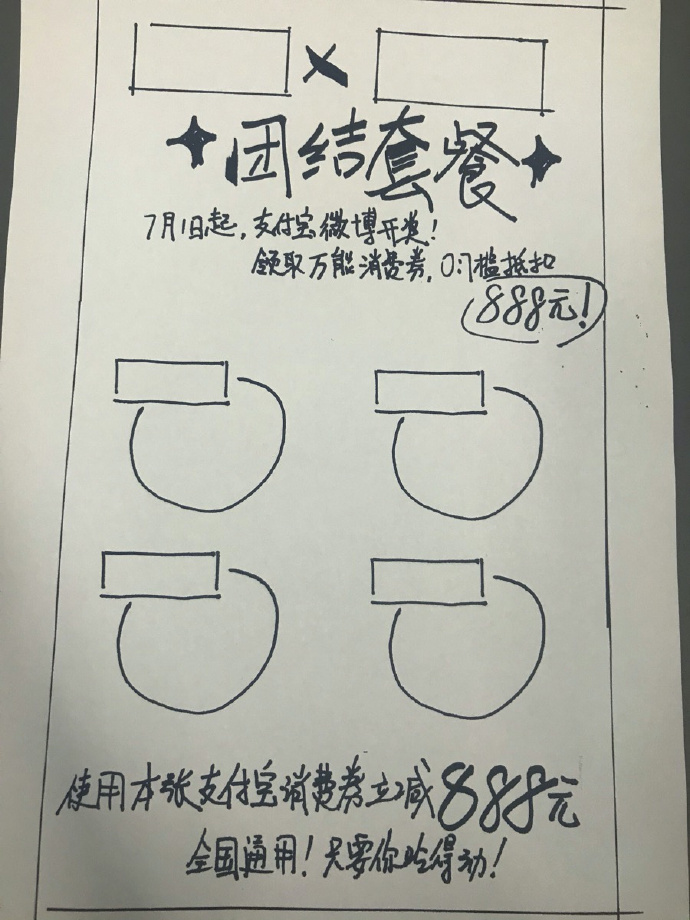 ×
团结套餐
7月1日起,支付宝微博开奖!
领取万能消费券,0门槛抵扣
888元!
使用本张支付宝消费券立减888元
全国通用!只要你吃得动!